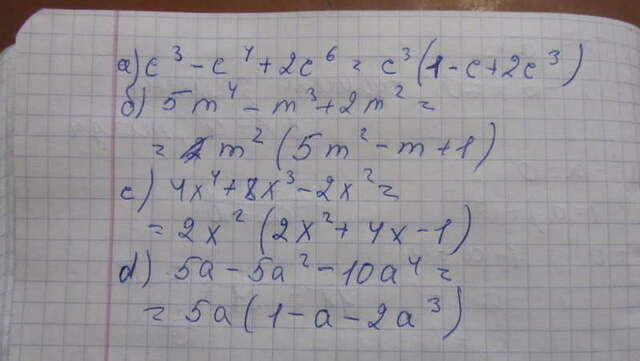 a) c³ - c⁴ + 2c⁶ = c³(1 - c + 2c³)
б) 5m⁴ - m³ + 2m² =
= m²(5m² - m + 1)
c) 4x⁴ + 8x³ - 2x² =
= 2x²(2x² + 4x - 1)
d) 5a - 5a² - 10a⁴ =
= 5a(1 - a - 2a³)